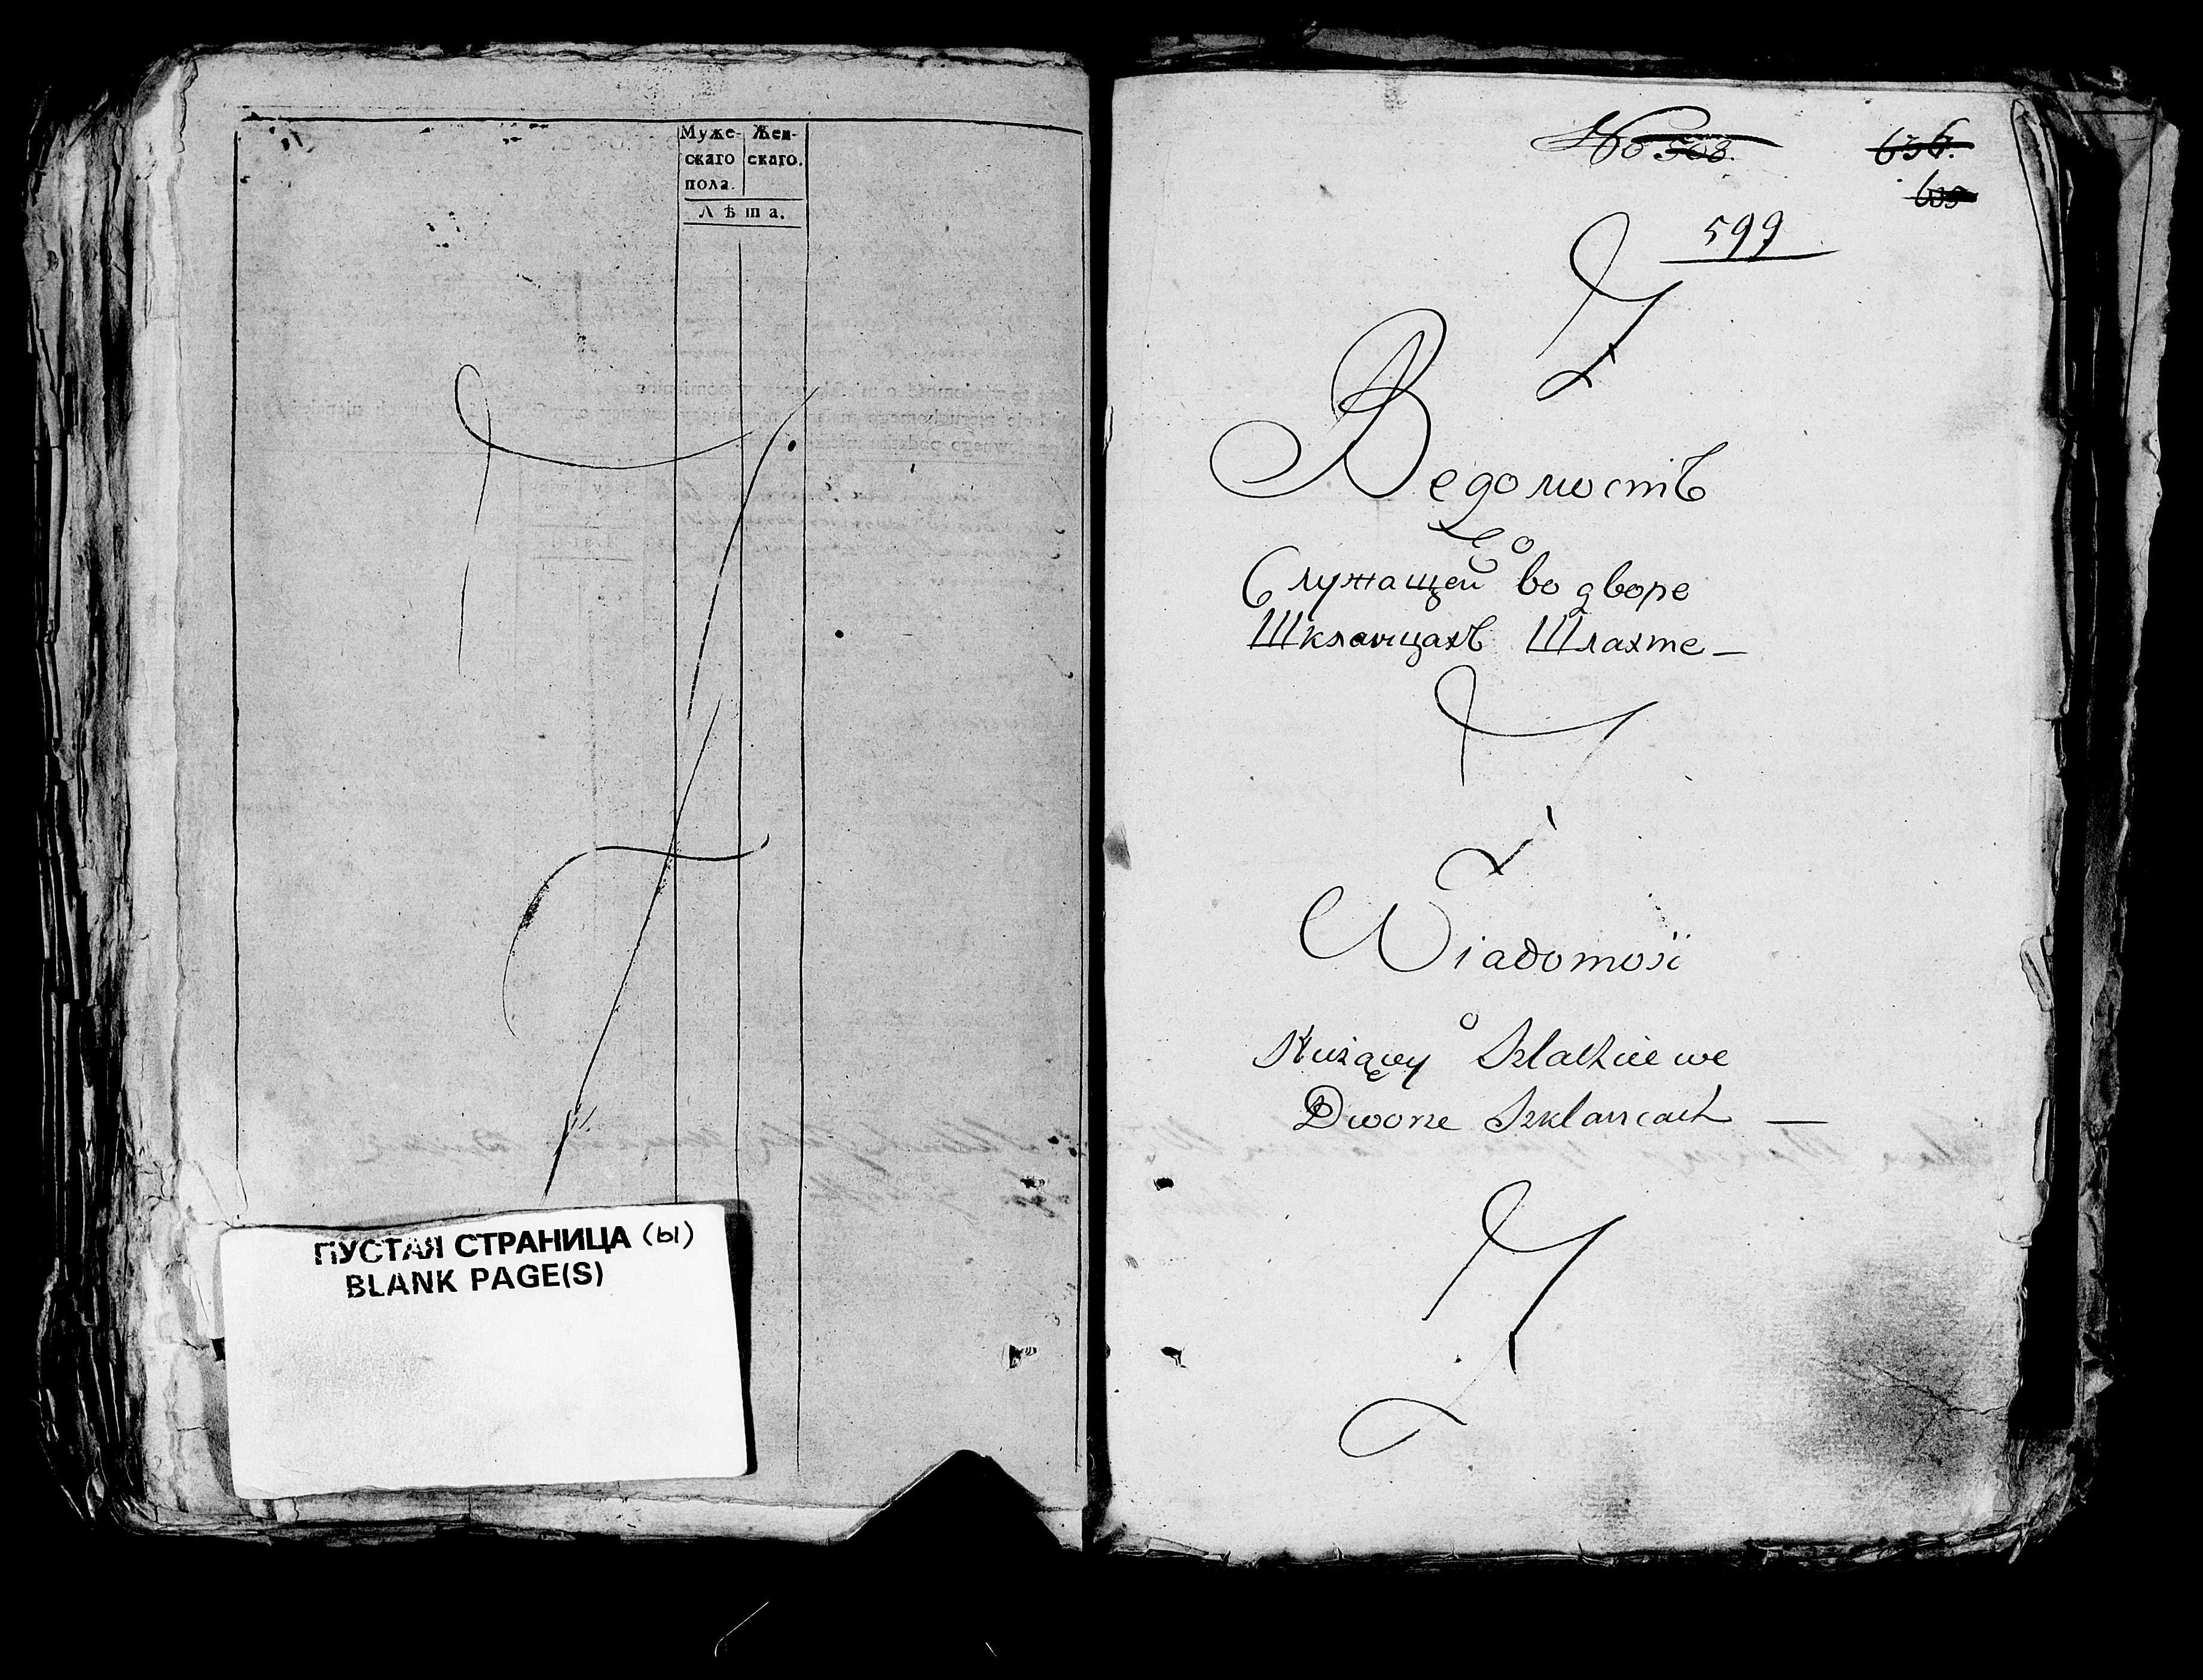 Муже- Жен-
скаго скаго.
пола.
Лѣта.
ПУСТАЯ СТРАНИЦА (ы)
BLANK PAGE(S)
No 508.
636.
635
599
Ведомость
о
Служащей во дворе
Шкланцахъ Шлахте
Wiadomość
o
Służący Szlachcie we
Dworze Szklancach